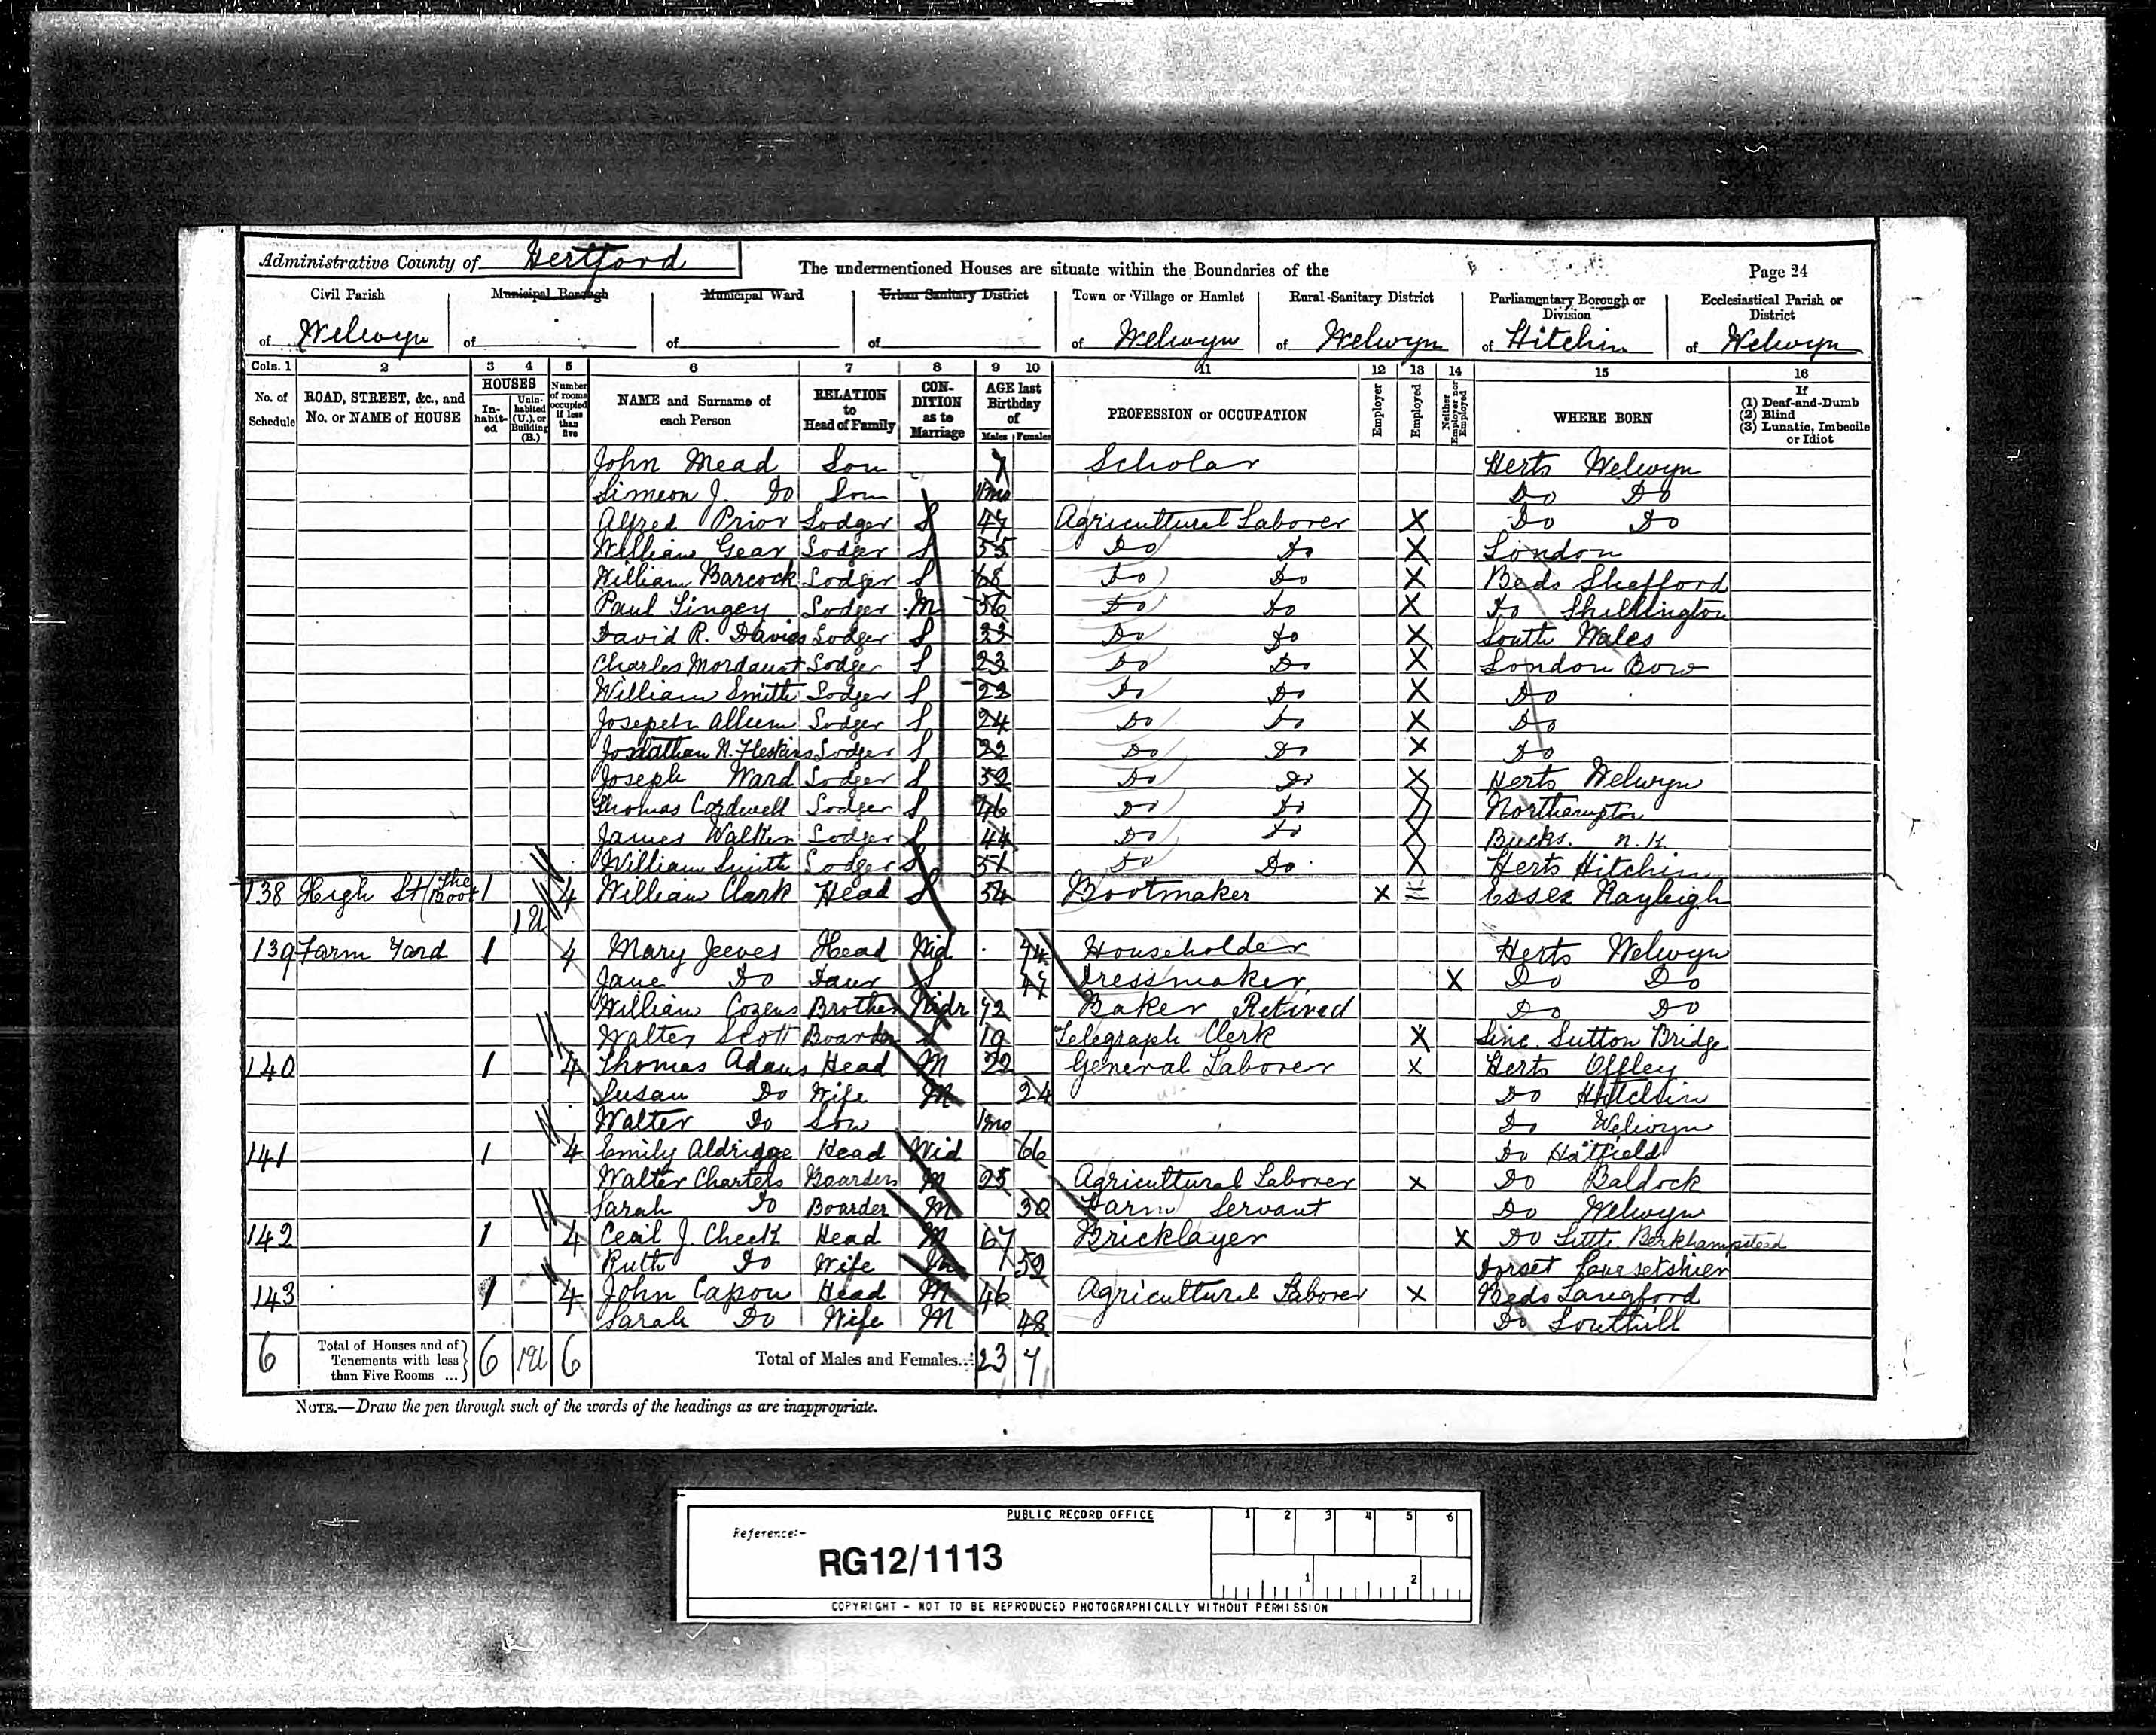 Administrative County of Hertford The undermentioned Houses are situate within the Boundaries of the Page 24
Civil Parish Municipal Borough Municipal Ward Urban Sanitary District Town or Village or Hamlet Rural Sanitary District Parliamentary Borough or Division Ecclesiastical Parish or District
of Welwyn of of of of Welwyn of Welwyn of Hitchin of Welwyn
Cols. 1 2 3 4 5 6 7 8 9 10 11 12 13 14 15 16
No. of Schedule ROAD, STREET, &c., and No. or NAME of HOUSE HOUSES In-habit-ed Unin-habited (U.), or Building (B.) Number of rooms occupied if less than five NAME and Surname of each Person RELATION to Head of Family CON-DITION as to Marriage AGE last Birthday of Males Females PROFESSION or OCCUPATION Employer Employed Neither Employer nor Employed WHERE BORN If (1) Deaf-and-Dumb (2) Blind (3) Lunatic, Imbecile or Idiot
John Mead Son Scholar Herts Welwyn
Simeon J. Do Son Do Do
Alfred Prior Lodger S 47 Agricultural Laborer X Do Do
William Gear Lodger S 35 Do Do X London
William Barcock Lodger S 68 Do Do X Beds Shefford
Paul Lingey Lodger M 56 Do Do X Do Shillington
David R. Davies Lodger S 33 Do Do X South Wales
Charles Mordaunt Lodger S 23 Do Do X London Bow
William Smith Lodger S 22 Do Do X Do
Joseph Allum Lodger S 24 Do Do X Do
Jonathan N. Heskins Lodger S 22 Do Do X Do
Joseph Ward Lodger S 52 Do Do X Herts Welwyn
Thomas Cordwell Lodger S 46 Do Do X Northampton
James Walker Lodger S 44 Do Do X Bucks. N.K.
William Smith Lodger S 51 Do Do X Herts Hitchin
138 High St (The Boot 1 4 William Clark Head S 54 Bootmaker X Essex Rayleigh
1U
139 Farm Yard 1 4 Mary Jeeves Head Wid 74 Householder Herts Welwyn
Jane Do Daur S 47 Dressmaker X Do Do
William Cozens Brother Widr 72 Baker Retired Do Do
Walter Scott Boarder S 19 Telegraph Clerk X Linc. Sutton Bridge
140 1 4 Thomas Adams Head M 22 General Laborer X Herts Offley
Susan Do Wife M 24 Do Hitchin
Walter Do Son 1mo Do Welwyn
141 1 4 Emily Aldridge Head Wid 66 Do Hatfield
Walter Charters Boarder M 25 Agricultural Laborer X Do Baldock
Sarah Do Boarder M 30 Farm Servant Do Welwyn
142 1 4 Cecil J. Cheek Head M 67 Bricklayer X Do Little Berkhampstead
Ruth Do Wife M 52 Dorset
143 1 4 John Capon Head M 46 Agricultural Laborer X Beds Langford
Sarah Do Wife M 48 Do Southill
6 Total of Houses and of Tenements with less than Five Rooms ... 6 1U 6 Total of Males and Females... 23 7
NOTE.—Draw the pen through such of the words of the headings as are inappropriate.
PUBLIC RECORD OFFICE 1 2 3 4 5 6
Reference:-
RG12/1113
1 2
COPYRIGHT - NOT TO BE REPRODUCED PHOTOGRAPHICALLY WITHOUT PERMISSION